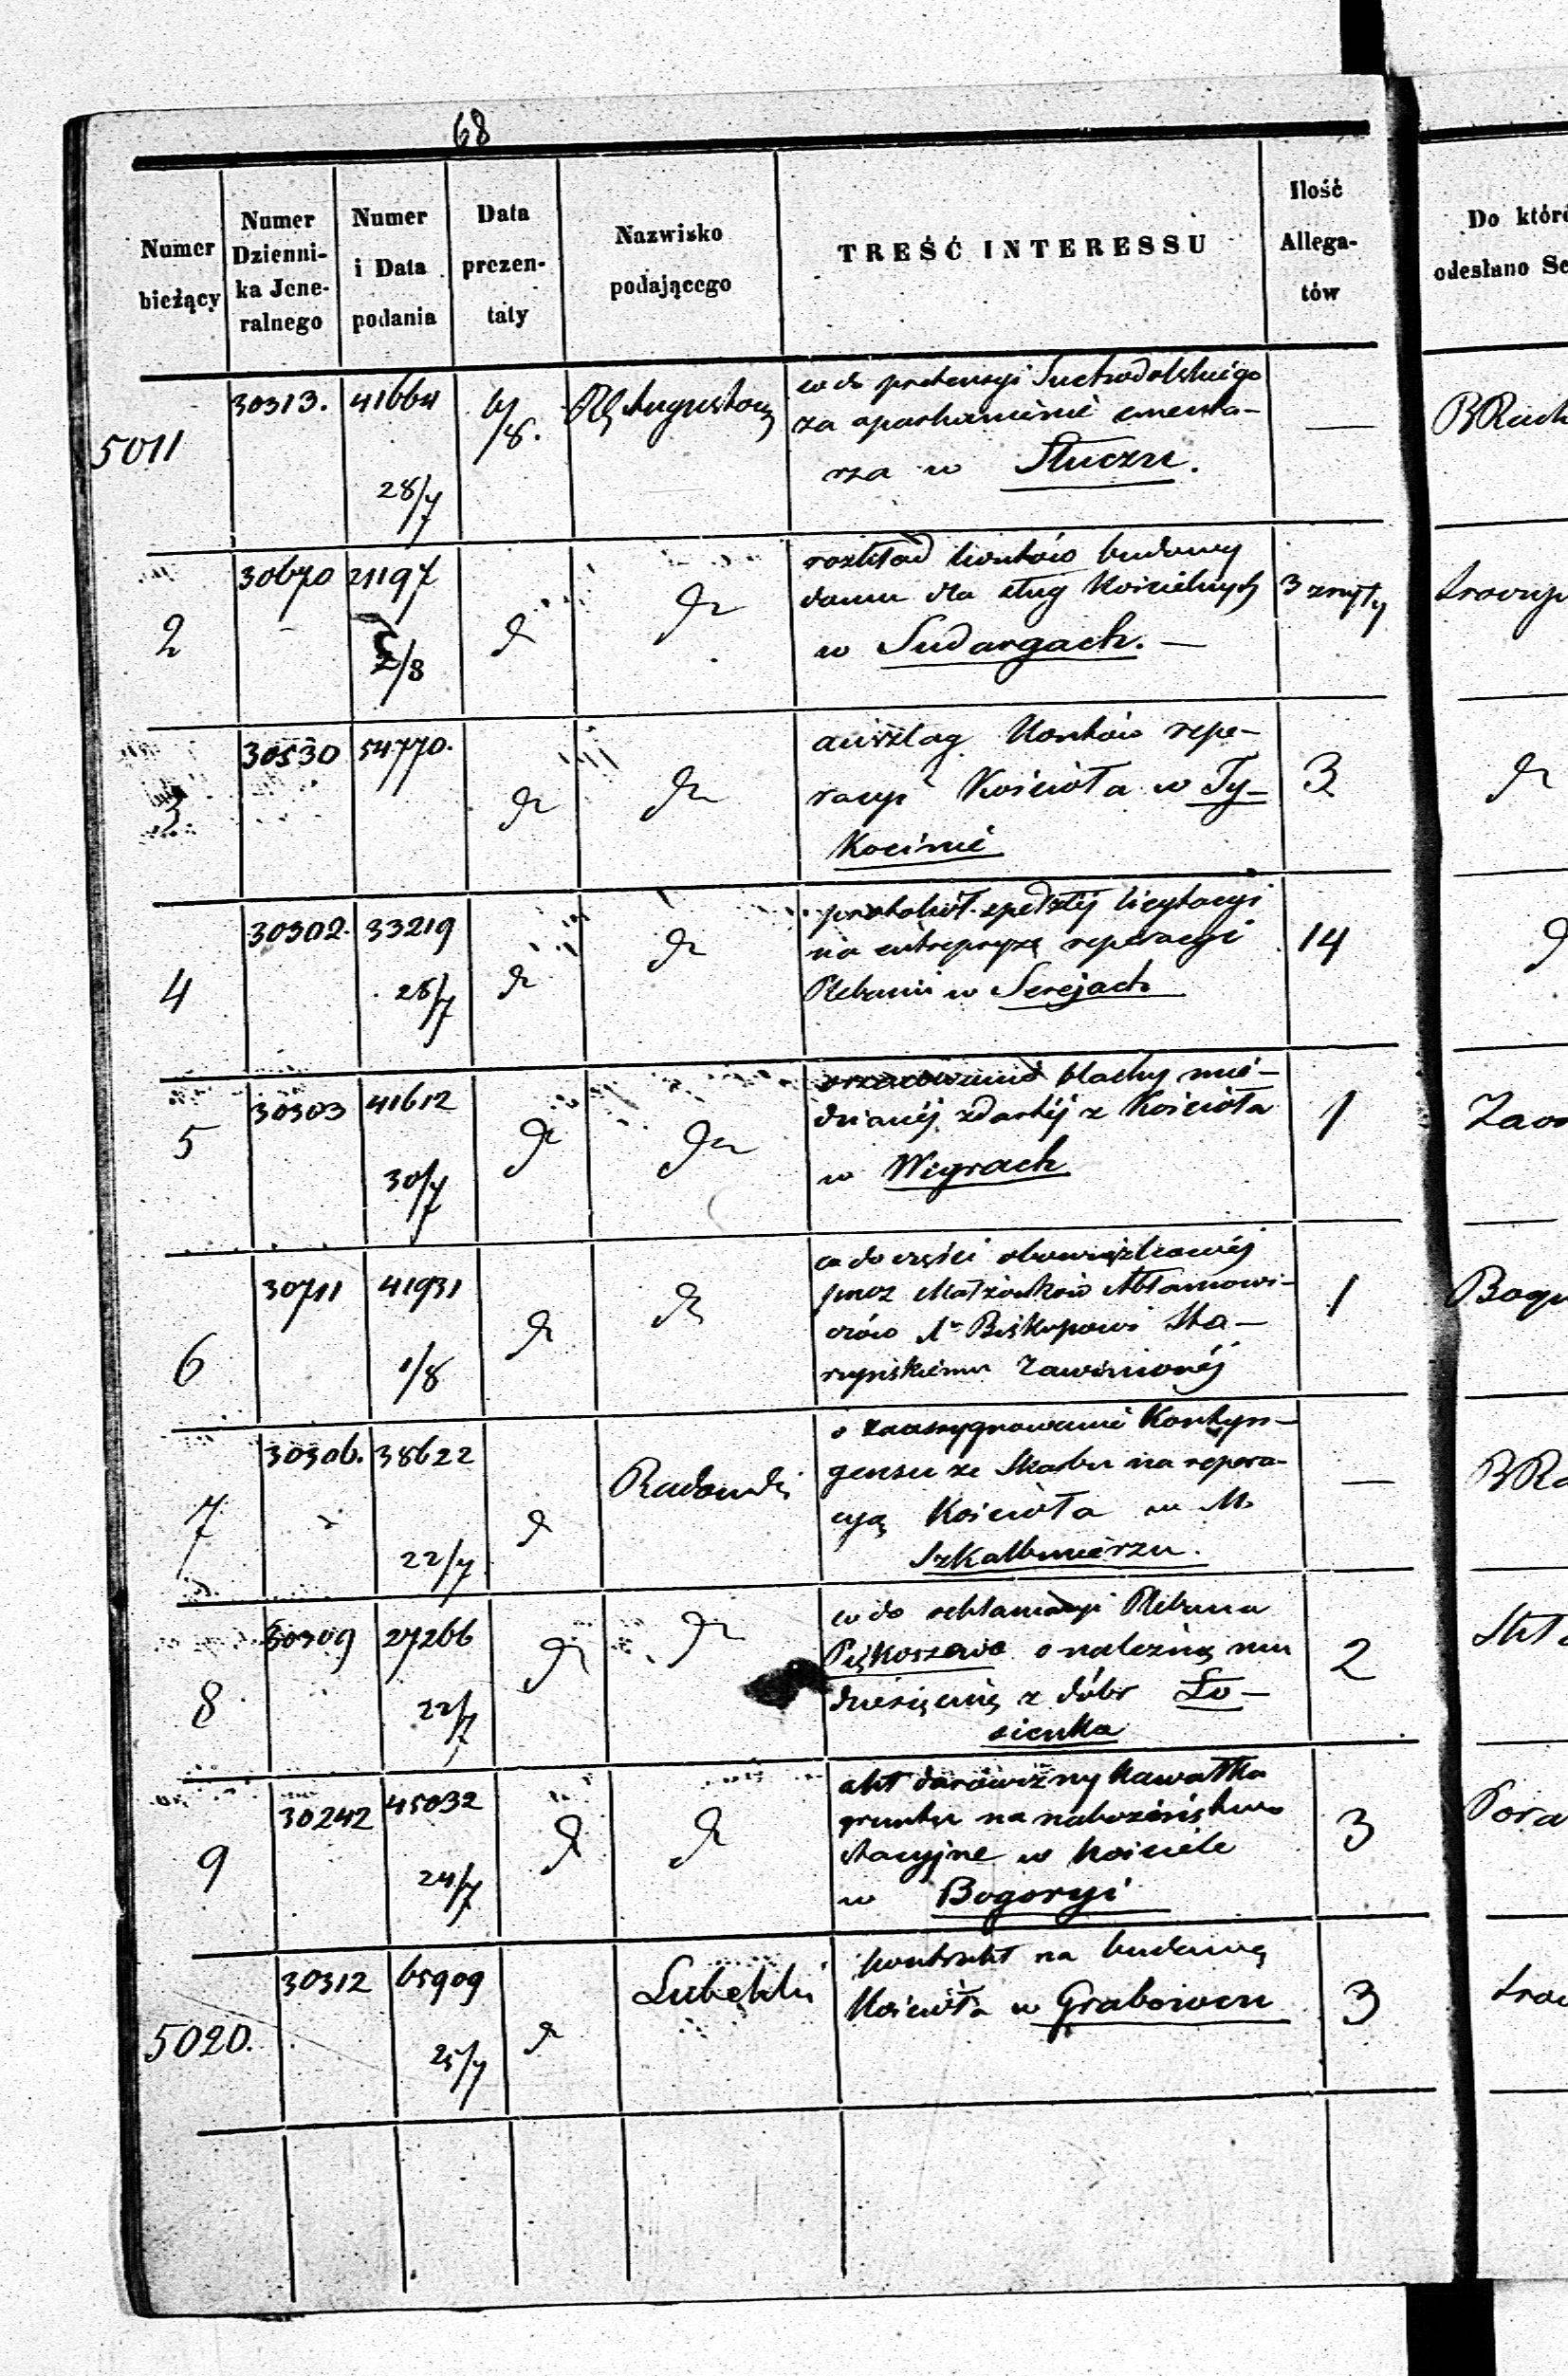 68
Numer bieżący
Numer Dziennika Jeneralnego
Numer i Data podania
Data prezentaty
Nazwisko podającego
TREŚĆ INTERESSU
Ilość Allegatów
Do któr
odesłano Se
5011 30313. 41664 28/7 4/8. Augustow
co do pretensyi Suchodolskiego
za oparkanienie cmenta-
rza w Stuczu.
—
2 30670 21197 2/8 dt dt
rozkład kosztów budowy
domu dla sług Kościelnych
w Sudargach. —
3 zszyty
3 30530 54770. dt dt
anszlag Kosztów repe-
racyi Kościoła w Ty-
Kocinie
3 dt
4 30302. 33219 28/7 dt dt
protokół spełzłéj licytacyi
na entrepryzę reperacyi
Plebanii w Serejach
14
5 30303 41612 30/7 dt dt
blachy mie-
dzianéj zdartéj z Kościoła
w Wigrach
1
6 30711 41931 1/8 dt dt
co do części obowiązkowéj
przez Małżonków Abłamowi-
czów Biskupowi Ska-
rzyńskiemu Zawinionéj
1
7 30306. 38622 22/7 dt Radomski
o zaasygnowanie Kontyn-
gensu ze Skarbu na repera-
cyą Kościoła w M.
Szkalbmierzu.
—
8 30309 27266 22/7 dt dt
co do reklamacyi Plebana
Piękoszewa o należną mu
dziesięcinę z dóbr Ło-
sienka
2
9 30242 45032 24/7 dt dt
akt darowizny kawałka
gruntu na nabożeństwo
stacyjne w kościele
w Bogoryi
3
5020. 30312 65909 25/7 dt Lubelski
kontrakt na budowę
Kościoła w Grabowcu
3